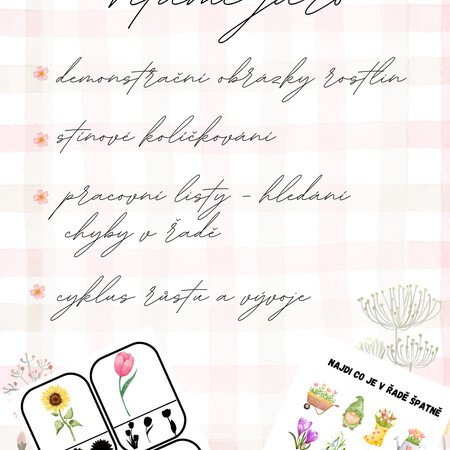 demonstrační obrázky rostlin
stínové kolíčkování
pracovní listy - hledání
chyby v řadě
cyklus růstu a vývoje
NAJDI CO JE V ŘADĚ ŠPATNĚ